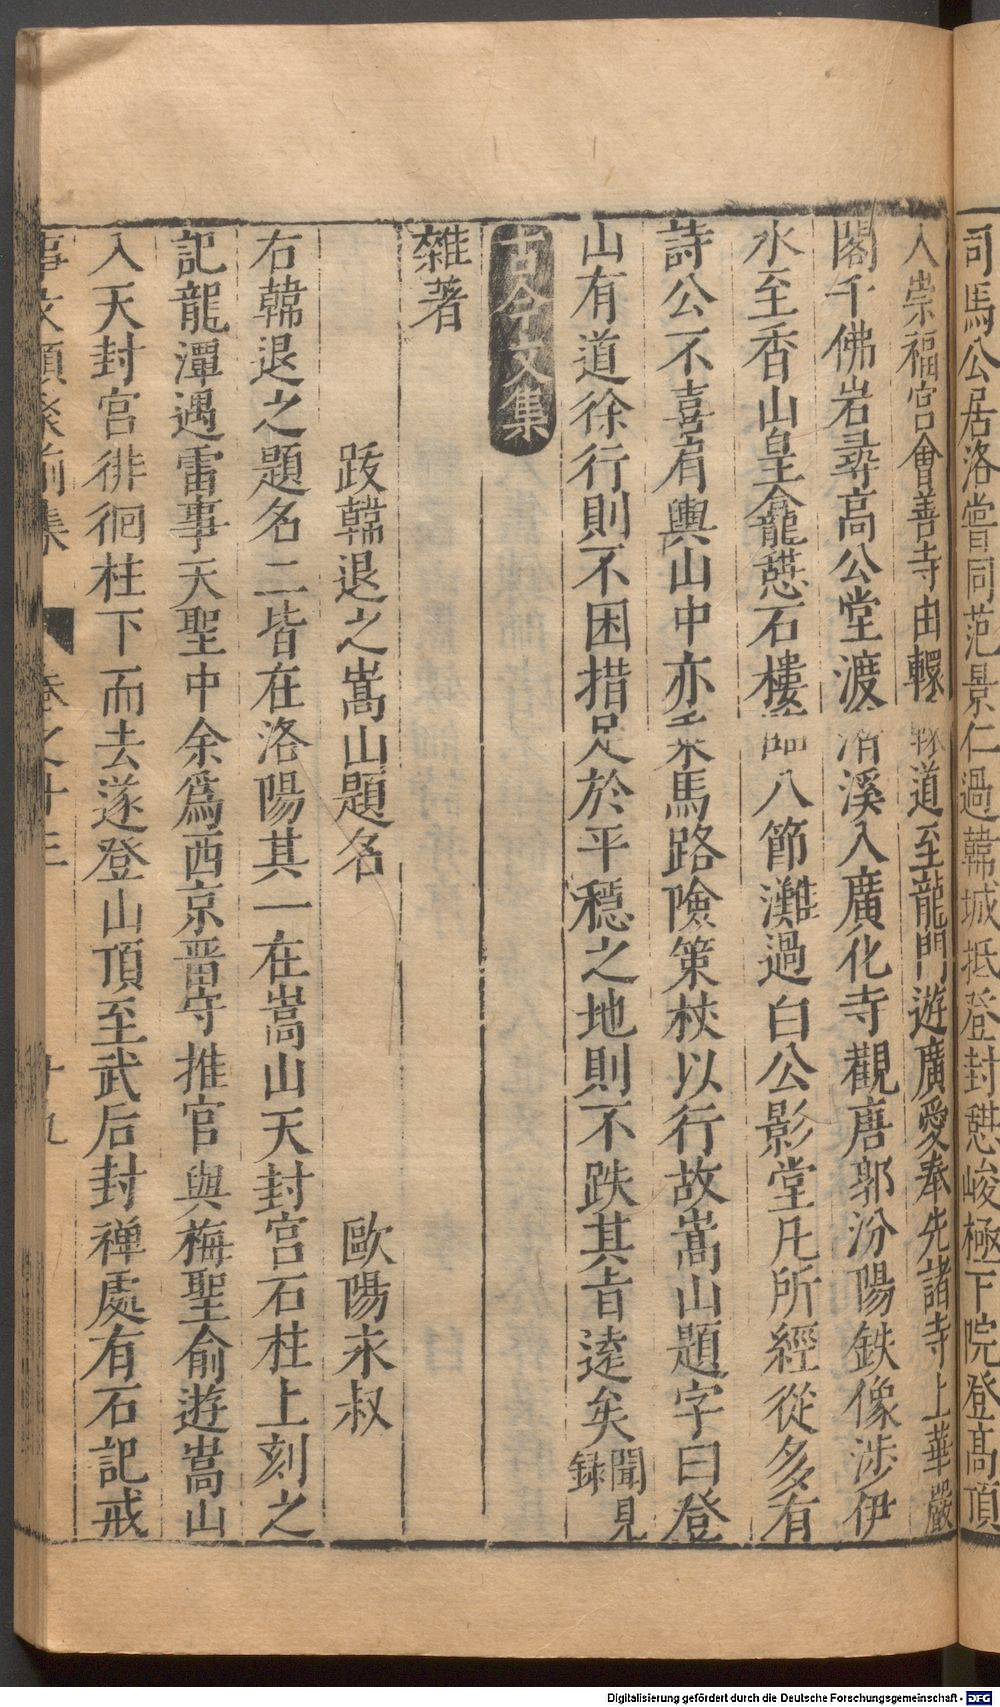 司馬公居洛嘗同范景仁過韓城抵登封憇峻極下院登髙頂
入崇福宮會善寺由轘轅道至龍門遊廣愛奉先諸寺上華嚴
閣千佛岩尋高公堂渡潛溪入廣化寺觀唐郭汾陽鉄像渉伊
水至香山皇龕憇石樓臨八節灘過白公影堂凡所經從多有
詩公不喜肩輿山中亦乗馬路險策杖以行故嵩山題字曰登
山有道徐行則不困措足於平穩之地則不跌其旨逺矣聞見録
古今文集
雜著
跋韓退之嵩山題名 歐陽永叔
右韓退之題名二皆在洛陽其一在嵩山天封宮石柱上刻之
記龍潭遇雷事天聖中余爲西京畱守推官與梅聖俞遊嵩山
入天封宮徘徊柱下而去遂登山頂至武后封禅處有石記戒
事文類聚前集 卷之十三 十九
Digitalisierung gefördert durch die Deutsche Forschungsgemeinschaft - DFG